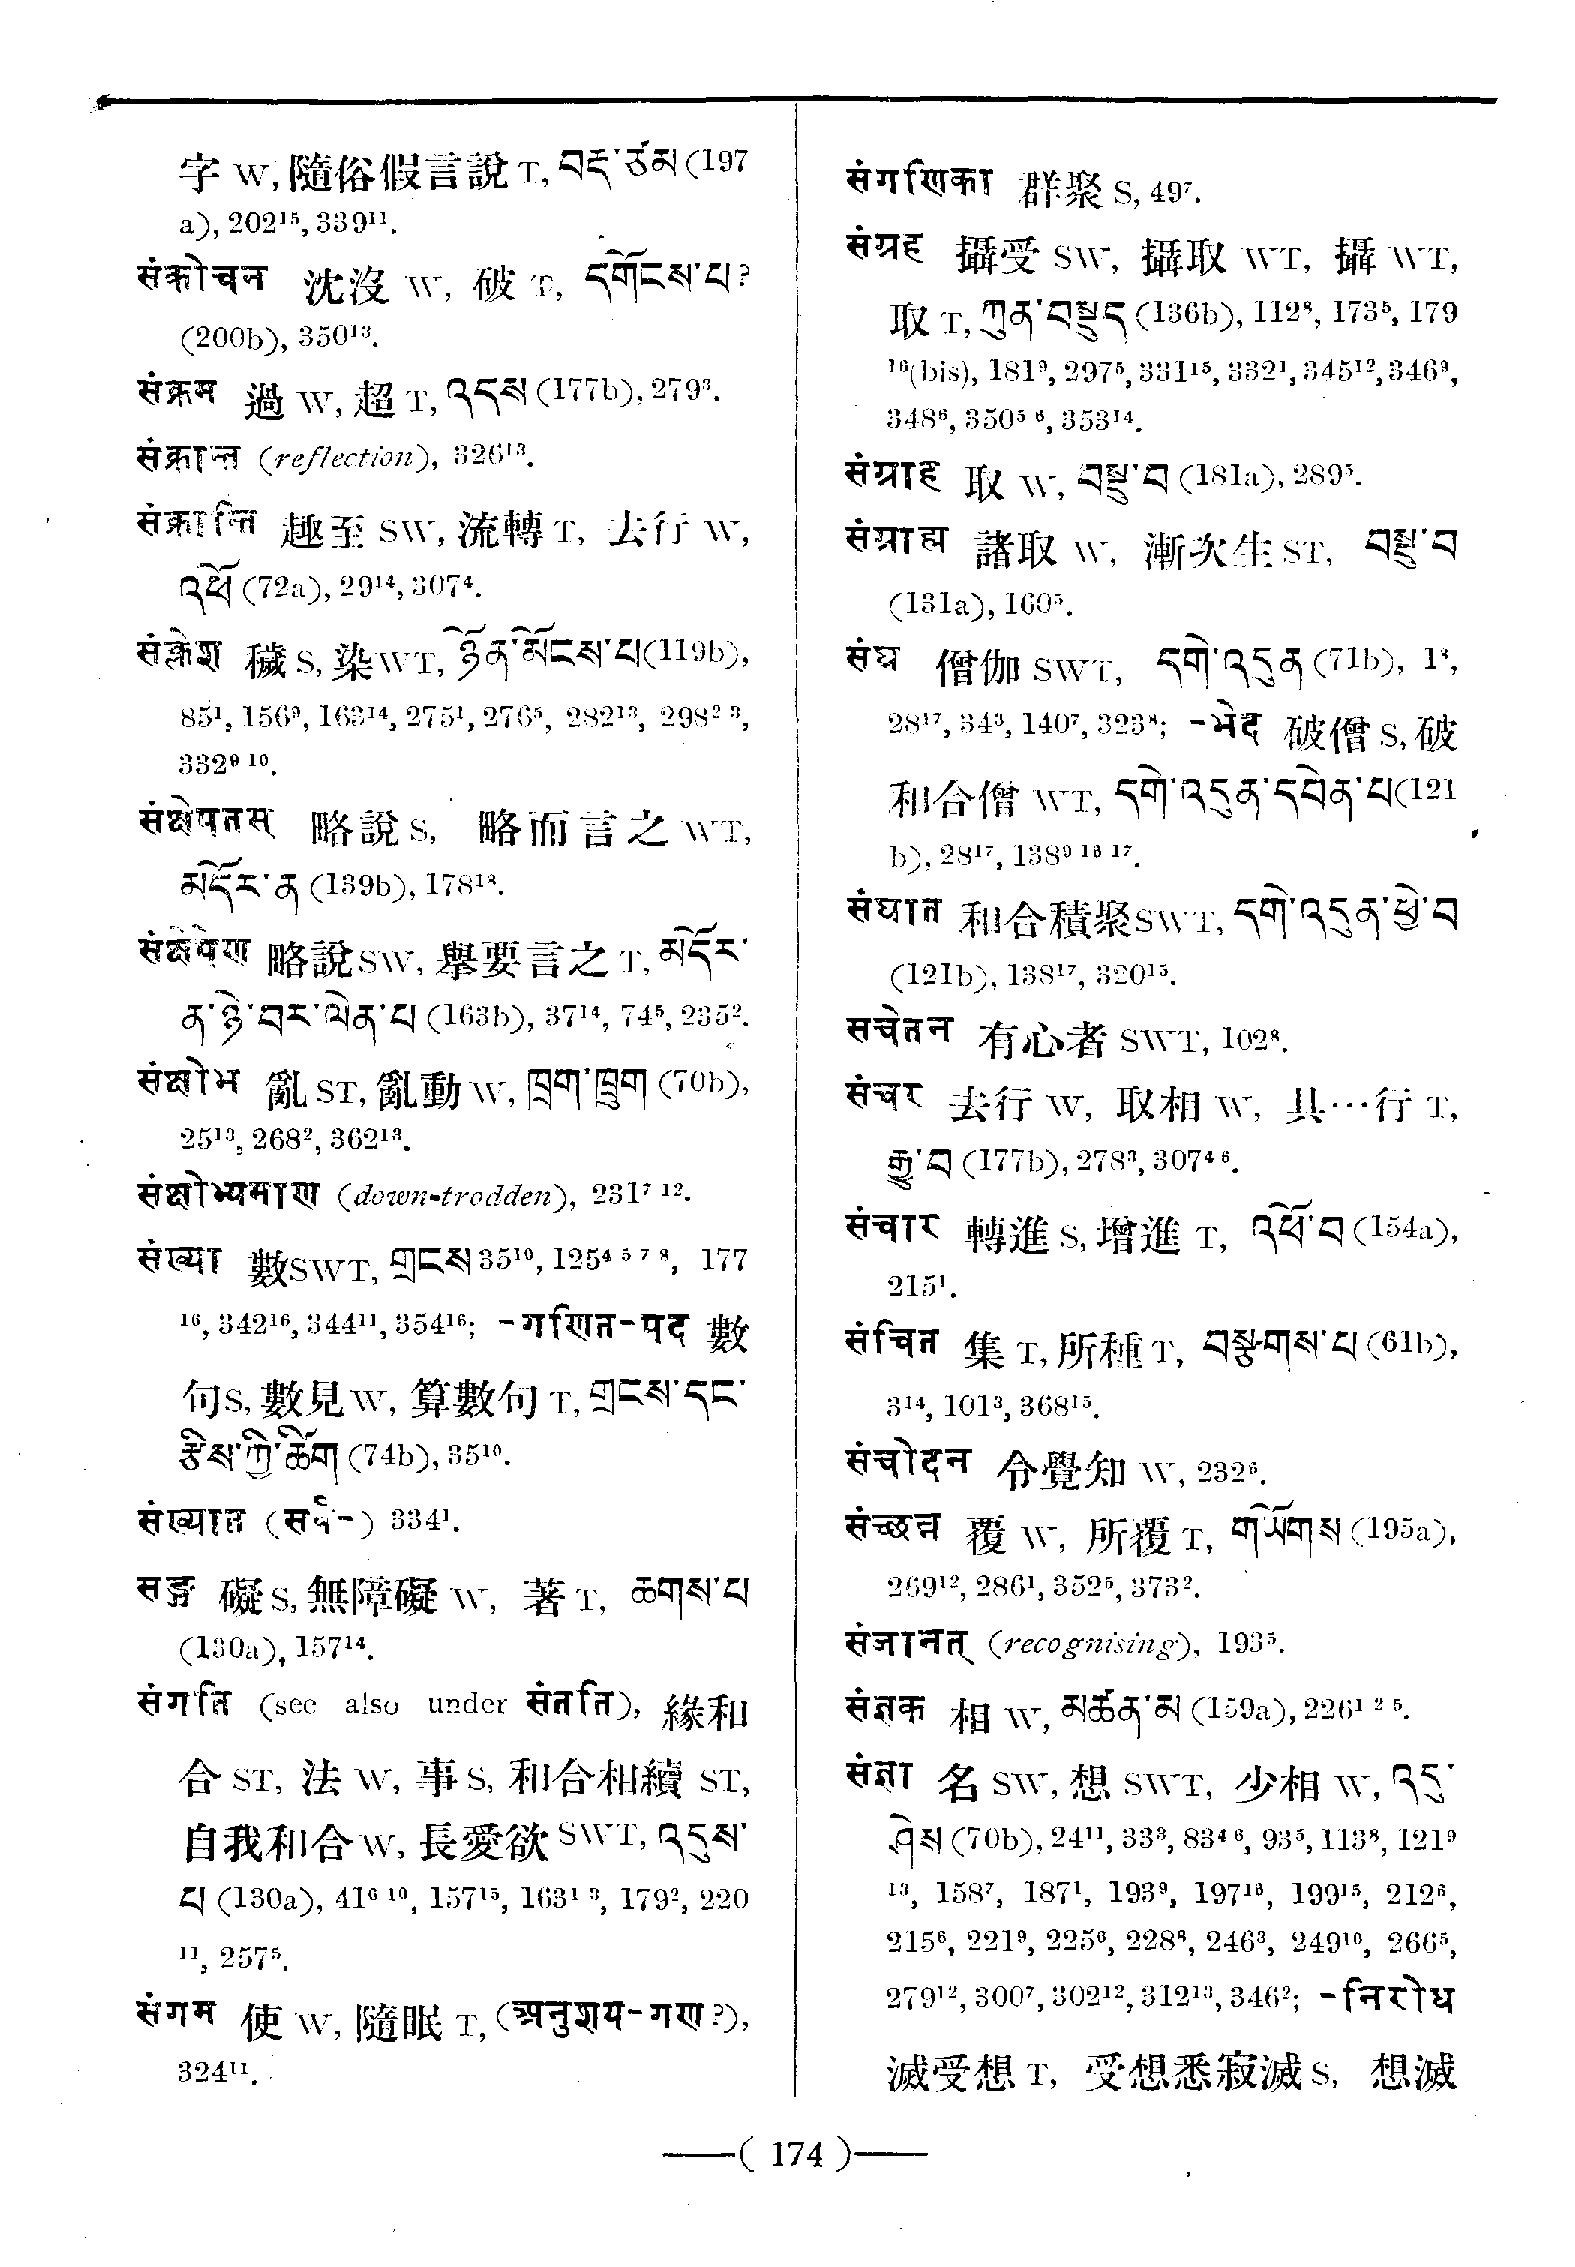 字 W, 隨俗假言說 T, བརྡ་ཙམ (197
a), 202¹⁵, 339¹¹.
संकोचन 沈沒 W, 破 T, དགོངས་པ?
(200b), 350¹³.
संक्रम 過 W, 超 T, འདས (177b), 279³.
संक्रान्त (reflection), 326¹³.
संक्रान्ति 趣至 SW, 流轉 T, 去行 W,
འཕོ (72a), 29¹⁴, 307⁴.
संक्लेश 穢 S, 染 WT, ཉོན་མོངས་པ (119b),
85¹, 156⁹, 163¹⁴, 275¹, 276⁵, 282¹³, 298² ³,
332⁹ ¹⁰.
संक्षेपतस् 略說 S, 略而言之 WT,
མདོར་ན (139b), 178¹³.
संक्षेपेण 略說 SW, 擧要言之 T, མདོར་
ན་ཉེ་བར་ལེན་པ (163b), 37¹⁴, 74⁵, 235².
संक्षोभ 亂 ST, 亂動 W, ཁྲག་ཁྲུག (70b),
25¹³, 268², 362¹³.
संक्षोभ्यमाण (down-trodden), 231⁷ ¹².
संख्या 數 SWT, གྲངས 35¹⁰, 125⁴ ⁵ ⁷ ⁸, 177
¹⁶, 342¹⁶, 344¹¹, 354¹⁶; -गणित-पद 數
句 S, 數見 W, 算數句 T, གྲངས་དང་
རྩིས་ཀྱི་ཚིག (74b), 35¹⁰.
संख्यात (सर्व-) 334¹.
सङ्ग 礙 S, 無障礙 W, 著 T, ཆགས་པ
(130a), 157¹⁴.
संगति (see also under संतति), 緣和
合 ST, 法 W, 事 S, 和合相續 ST,
自我和合 W, 長愛欲 SWT, འདུས་
པ (130a), 41⁶ ¹⁰, 157¹⁵, 163¹ ³, 179², 220
¹¹, 257⁵.
संगम 使 W, 隨眠 T, (अनुशय-गण?),
324¹¹.
संगणिका 群聚 S, 49⁷.
संग्रह 攝受 SW, 攝取 WT, 攝 WT,
取 T, ཀུན་བསྡུད (136b), 112⁸, 173⁵, 179
¹⁶(bis), 181⁹, 297⁵, 331¹⁵, 332¹, 345¹², 346⁹,
348⁶, 350⁵ ⁶, 353¹⁴.
संग्राह 取 W, བསྡུ་བ (181a), 289⁵.
संग्राह्य 諸取 W, 漸次生 ST, བསྡུ་བ
(131a), 160⁵.
संघ 僧伽 SWT, དགེ་འདུན (71b), 1³,
28¹⁷, 34³, 140⁷, 323⁸; -भेद 破僧 S, 破
和合僧 WT, དགེ་འདུན་དབེན་པ (121
b), 28¹⁷, 138⁹ ¹⁶ ¹⁷.
संघात 和合積聚 SWT, དགེ་འདུན་ཕྱེ་བ
(121b), 138¹⁷, 320¹⁵.
सचेतन 有心者 SWT, 102⁸.
संचर 去行 W, 取相 W, 具…行 T,
རྒྱུ་བ (177b), 278³, 307⁴ ⁶.
संचार 轉進 S, 增進 T, འཕོ་བ (154a),
215¹.
संचित 集 T, 所種 T, བསྩགས་པ (61b),
3¹⁴, 101³, 368¹⁵.
संचोदन 令覺知 W, 232⁶.
संच्छन्न 覆 W, 所覆 T, གཡོགས (195a),
269¹², 286¹, 352⁵, 373².
संजानत् (recognising), 193⁵.
संज्ञक 相 W, མཚན་མ (159a), 226¹ ² ⁵.
संज्ञा 名 SW, 想 SWT, 少相 W, འདུ་
ཤེས (70b), 24¹¹, 33³, 83⁴ ⁶, 93⁵, 113⁸, 121⁹
¹³, 158⁷, 187¹, 193⁹, 197¹⁶, 199¹⁵, 212⁶,
215⁶, 221⁹, 225⁶, 228⁸, 246³, 249¹⁰, 266⁵,
279¹², 300⁷, 302¹², 312¹³, 346²; -निरोध
滅受想 T, 受想悉寂滅 S, 想滅
( 174 )